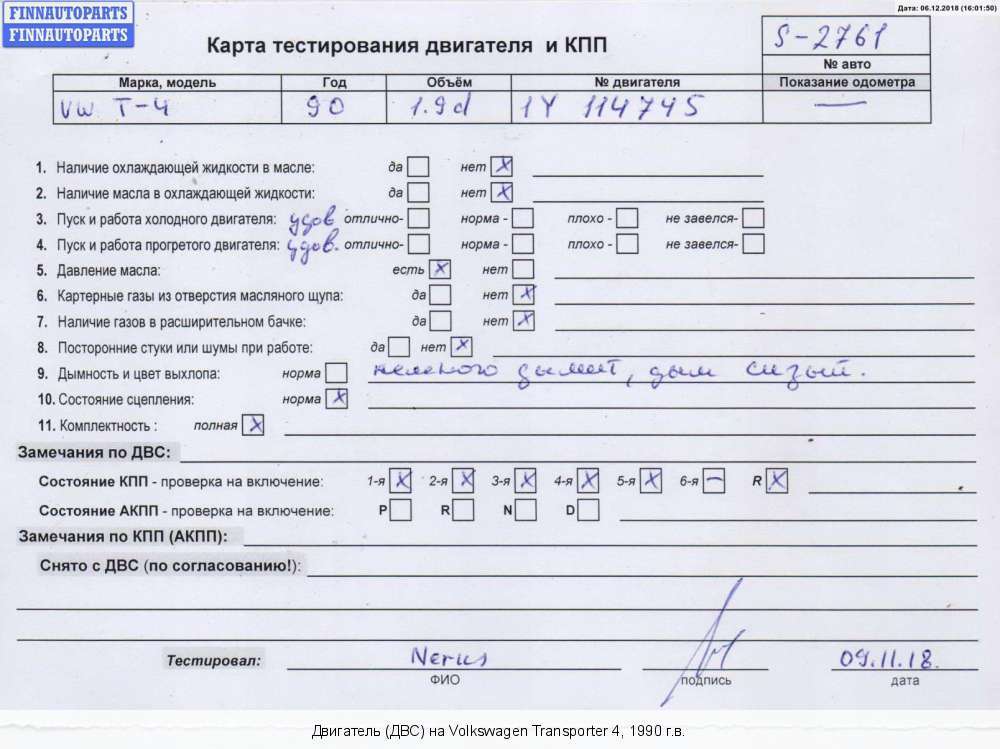 FINNAUTOPARTS
FINNAUTOPARTS
Дата: 06.12.2018 (16:01:50)
Карта тестирования двигателя и КПП
S-2761
№ авто
Марка, модель Год Объём № двигателя Показание одометра
VW T-4 90 1.9d 1Y 114745 —
1. Наличие охлаждающей жидкости в масле: да нет X
2. Наличие масла в охлаждающей жидкости: да нет X
3. Пуск и работа холодного двигателя: удов отлично- норма - плохо - не завелся-
4. Пуск и работа прогретого двигателя: удов. отлично- норма - плохо - не завелся-
5. Давление масла: есть X нет
6. Картерные газы из отверстия масляного щупа: да нет X
7. Наличие газов в расширительном бачке: да нет X
8. Посторонние стуки или шумы при работе: да нет X
9. Дымность и цвет выхлопа: норма немного дымит, дым сизый.
10. Состояние сцепления: норма X
11. Комплектность : полная X
Замечания по ДВС:
Состояние КПП - проверка на включение: 1-я X 2-я X 3-я X 4-я X 5-я X 6-я — R X
Состояние АКПП - проверка на включение: P R N D
Замечания по КПП (АКПП):
Снято с ДВС (по согласованию!):
Тестировал: Nerus 09.11.18.
ФИО подпись дата
Двигатель (ДВС) на Volkswagen Transporter 4, 1990 г.в.